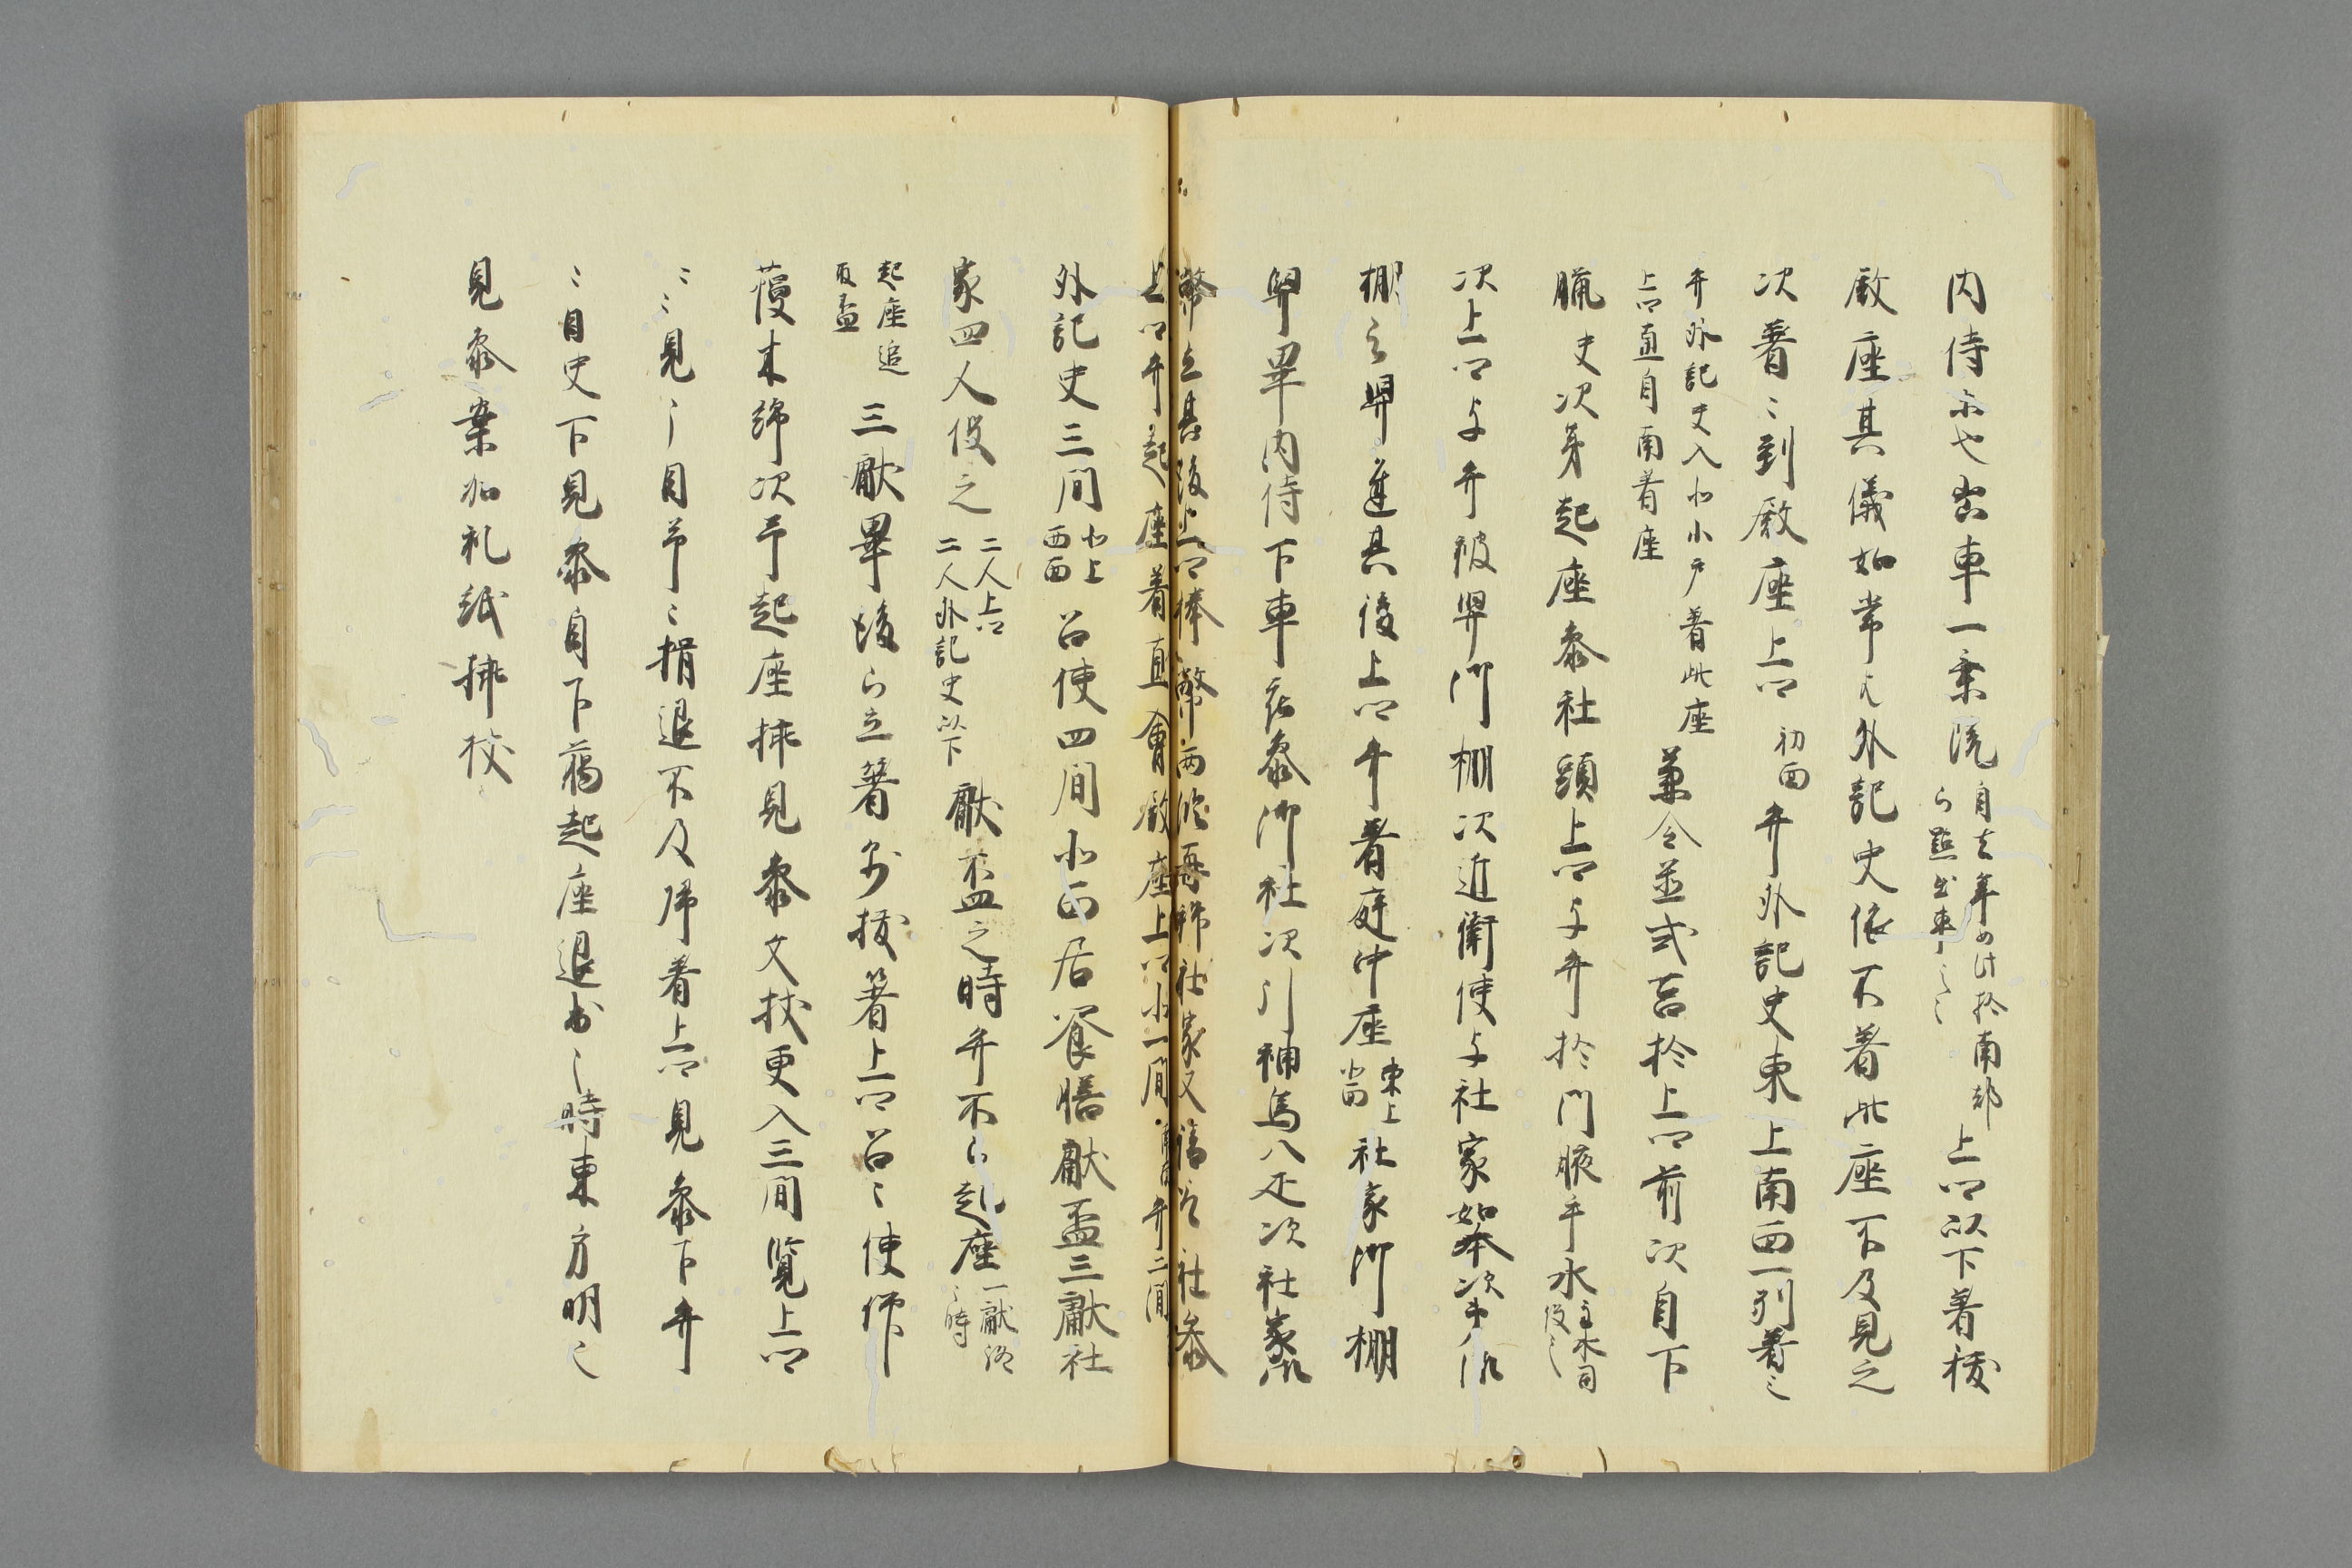 内侍示也出車一乗院
自去年如此於南都
被點出車云々
上卿以下着祓
殿座其儀如常
外記史依不着此座不及見之
次着々到殿座上卿
初西
弁外記史東上南面一列着之
弁外記史入北小戸着此座
上卿直自南着座
兼令並式筥於上卿前次自下
臈史次第起座参社頭上卿与弁於門腋手水
主水司
役之
次上卿与弁被舁御棚次近衛使与社家如本次第
棚之舁進其後上卿弁着庭中座
東上
北面
社家御棚
舁畢内侍下車被参御社次引神馬八疋次社家
幣立其後上卿捧幣両段再拝社家又社参
上卿弁起座着直会殿座上卿北一間
弁二間
外記史三間
北上
西面
召使四間北面居饗膳献盃三献社
家四人役之
二人上卿
二人外記史以下
献盃之時弁不被起座
一献
之時
起座追
取盃
三献畢後被立箸即抜箸上卿召々使仰
蘰木綿次予起座挿見参文杖更入三間覧上卿
々々見了目予々揖退不及帰着上卿見参下弁
々目史下見参自下臈起座退出之時東方明之
見参案加礼紙挿杖